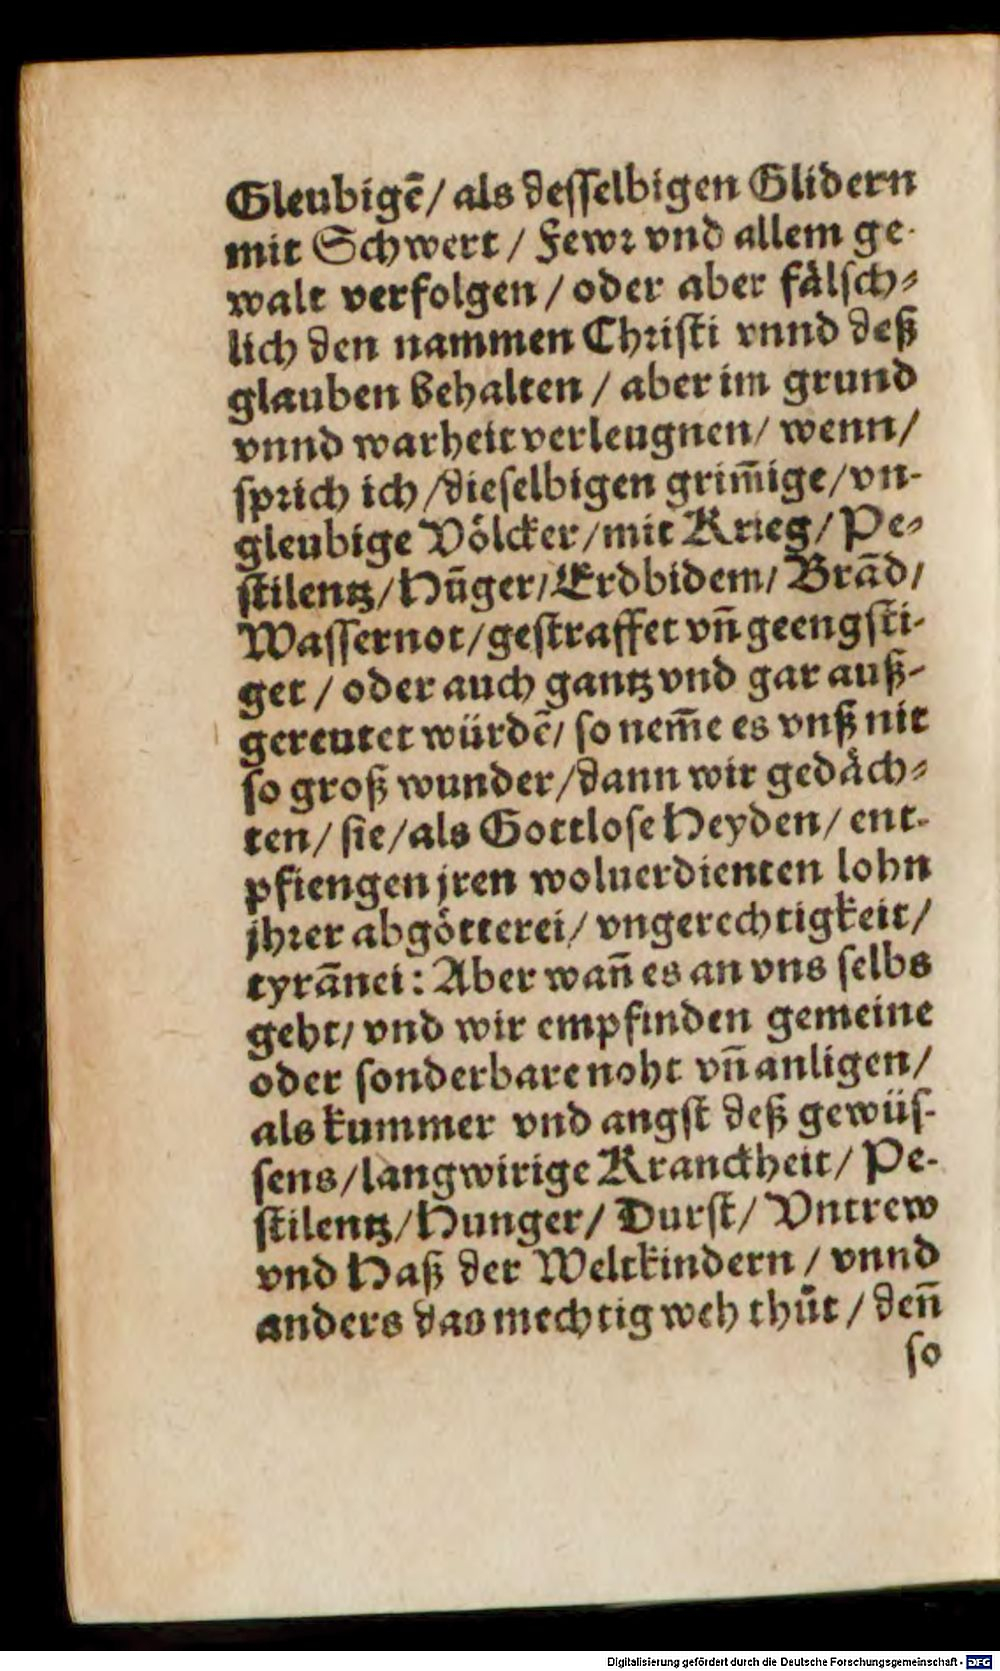 Gleubigē/ als desſelbigen Glidern
mit Schwert / Fewꝛ vnd allem ge-
walt verfolgen / oder aber fälſch⸗
lich den nammen Chꝛiſti vnnd deß
glauben behalten / aber im grund
vnnd warheit verleugnen/ wenn/
ſpꝛich ich /dieſelbigen grim̄ige/vn-
gleubige Völcker/mit Krieg/ Pe⸗
ſtilentz/Hūger/Erdbidem/ Brād/
Waſſernot/geſtraffet vn̄ geengſti-
get / oder auch gantz vnd gar auß-
gereutet würdē/ ſo nem̄e es vnß nit
ſo groß wunder/dann wir gedäch⸗
ten/ ſie/als Gottloſe Heyden/ ent-
pfiengen jren woluerdienten lohn
jhꝛer abgötterei/ vngerechtigkeit/
tyrānei: Aber wan̄ es an vns ſelbs
geht/ vnd wir empfinden gemeine
oder ſonderbare noht vn̄ anligen/
als kummer vnd angſt deß gewüſ-
ſens/langwirige Kranckheit/ Pe-
ſtilentz/Hunger/ Durſt/ Vntrew
vnd Haß der Weltkindern / vnnd
anders das mechtig weh thůt / den̄
ſo
Digitalisierung gefördert durch die Deutsche Forschungsgemeinschaft - DFG